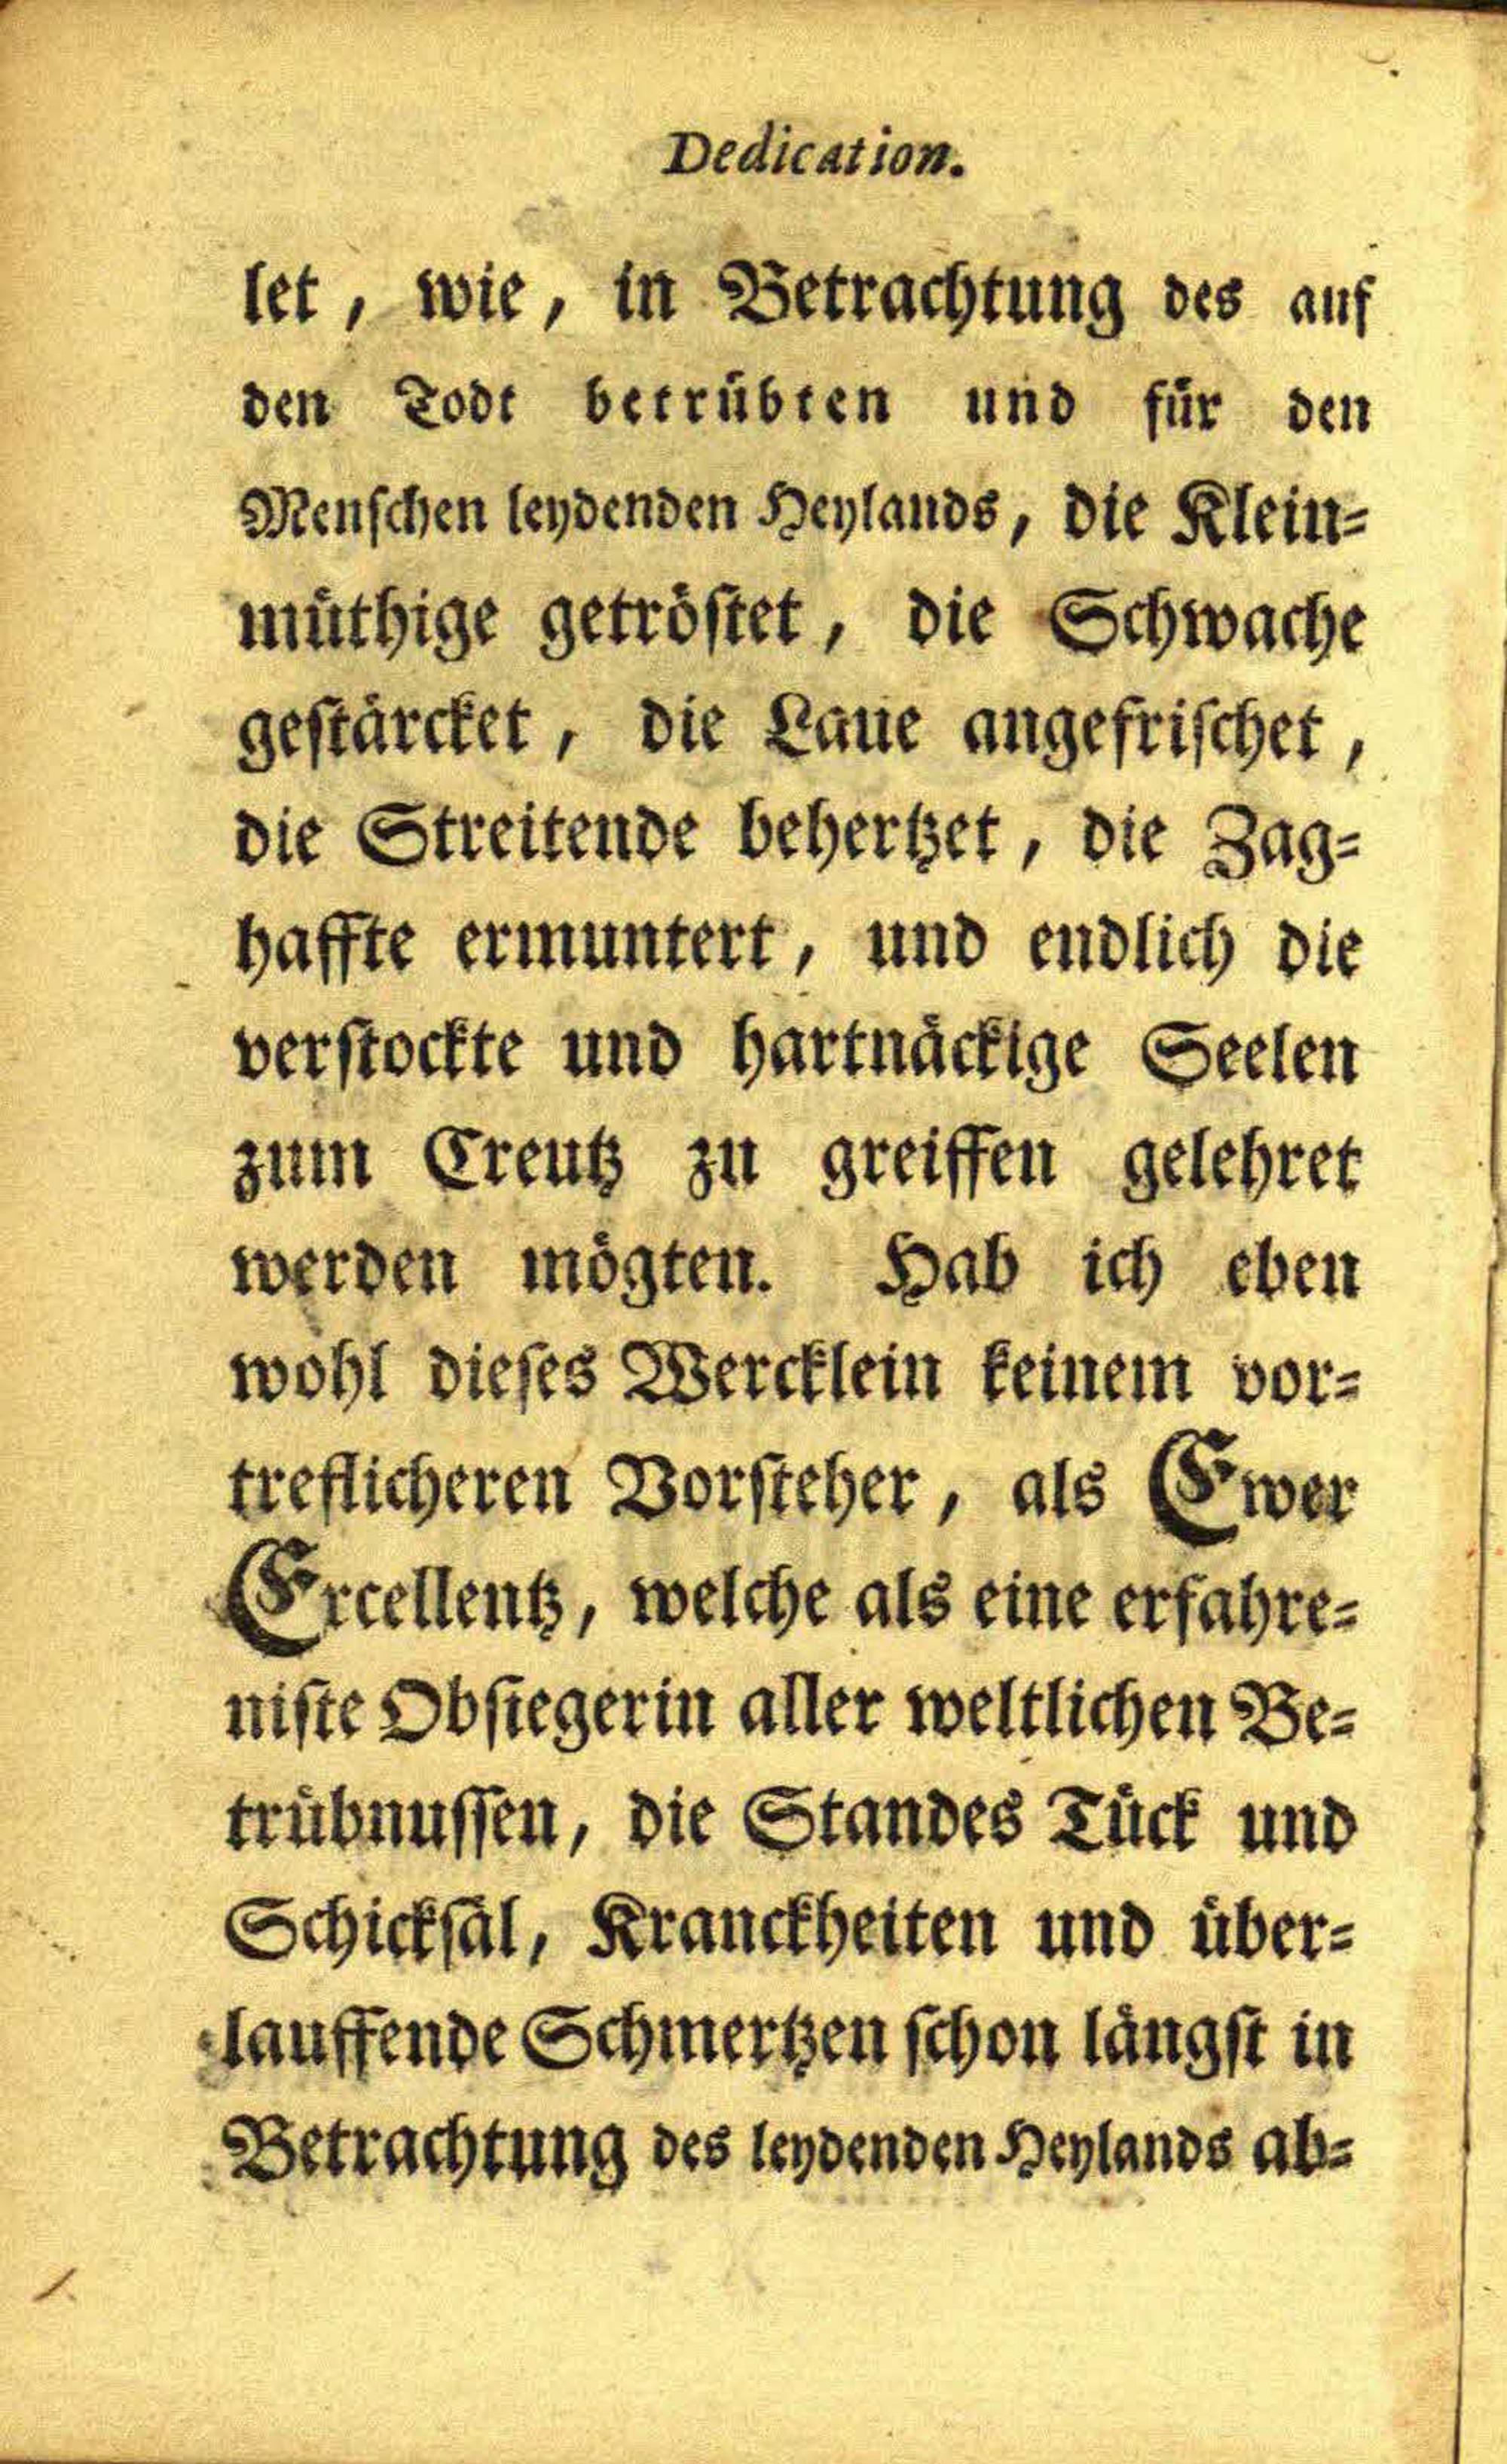 Dedication.
let, wie, in Betrachtung des auf
den Todt betrübten und für den
Menschen leydenden Heylands, die Klein-
müthige getröstet, die Schwache
gestärcket, die Laue angefrischet,
die Streitende behertzet, die Zag-
haffte ermuntert, und endlich die
verstockte und hartnäckige Seelen
zum Creutz zu greiffen gelehret
werden mögten. Hab ich eben
wohl dieses Wercklein keinem vor-
treflicheren Vorsteher, als Ewer
Excellentz, welche als eine erfahre-
niste Obsiegerin aller weltlichen Be-
trübnussen, die Standes Tück und
Schicksäl, Kranckheiten und über-
lauffende Schmertzen schon längst in
Betrachtung des leydenden Heylands ab-